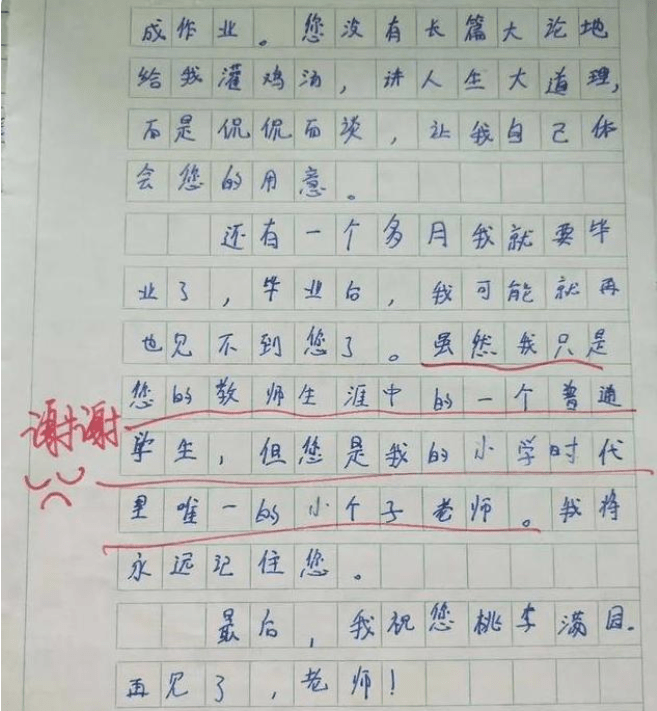 成作业。您没有长篇大论地
给我灌鸡汤，讲人生大道理，
而是侃侃而谈，让我自己体
会您的用意。
还有一个多月我就要毕
业了，毕业后，我可能就再
也见不到您了。虽然我只是
您的教师生涯中的一个普通
谢谢
学生，但您是我的小学时代
里唯一的小个子老师。我将
永远记住您。
最后，我祝您桃李满园。
再见了，老师！